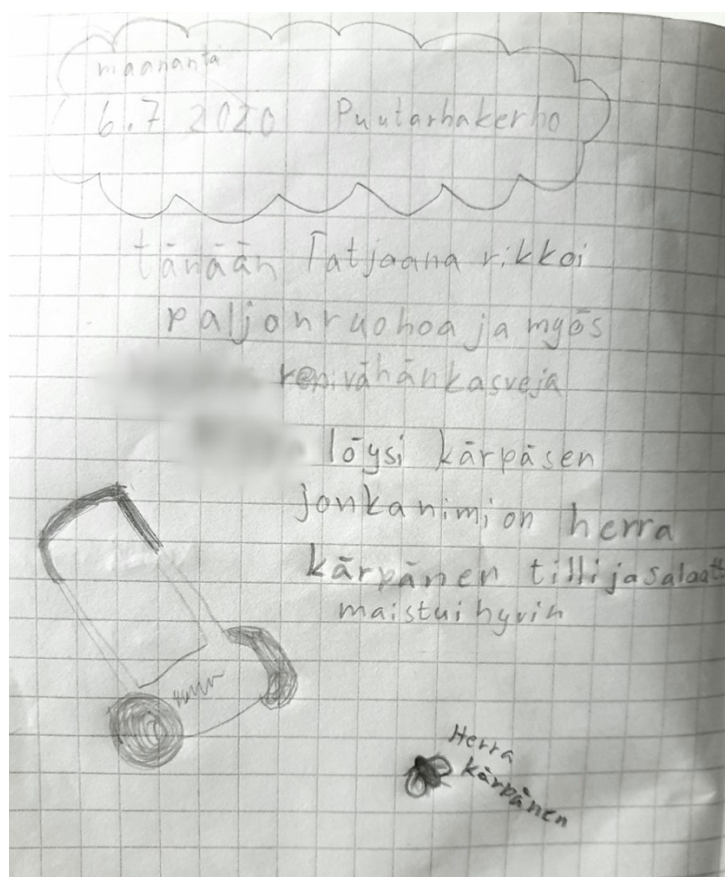 maananta
6.7 2020 Puutarhakerho
tänään Tatjaana rikkoi
paljonruohoa ja myös
repi vähänkasveja
löysi kärpäsen
jonkanimi on herra
kärpänen tilli ja salaatt
maistui hyvin
Herra
kärpänen